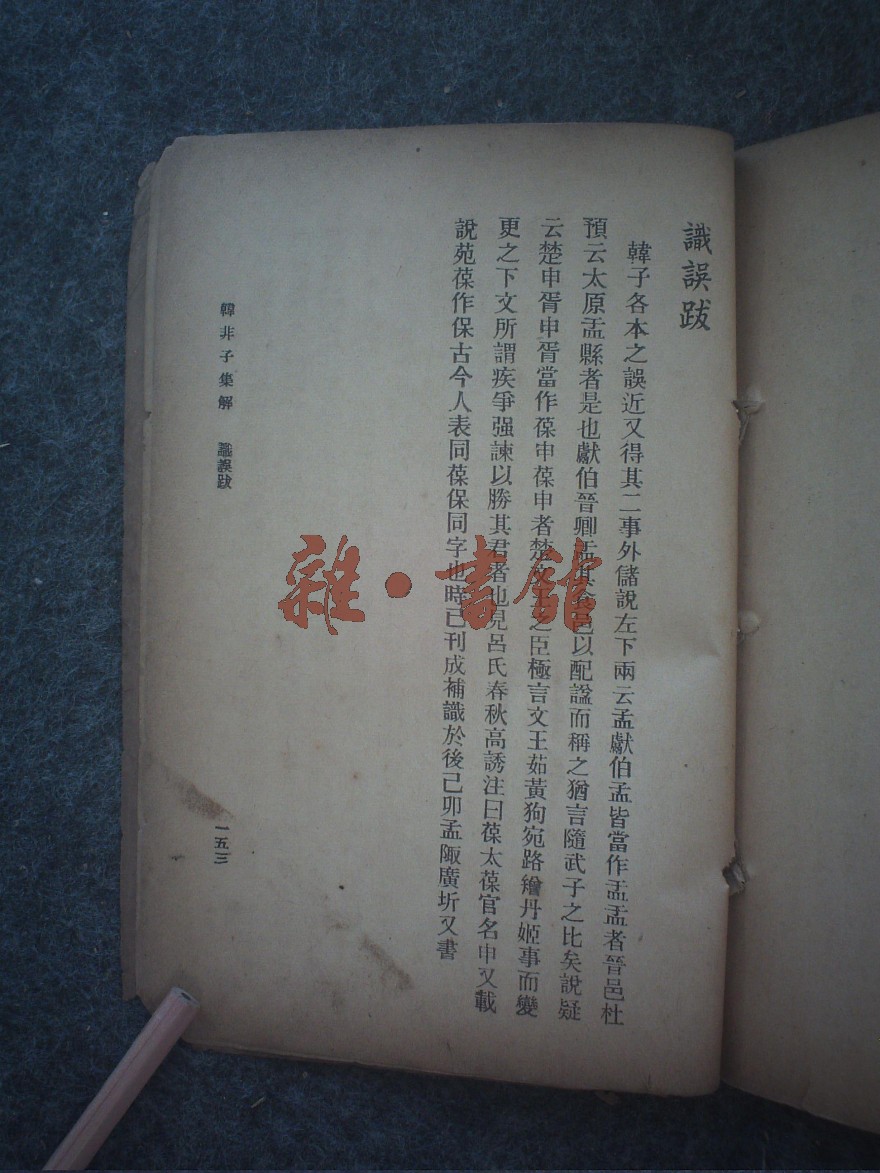 識誤跋
韓子各本之誤近又得其二事外儲說左下兩云孟獻伯孟皆當作盂盂者晉邑杜
預云太原盂縣者是也獻伯晉卿盂其食邑以配諡而稱之猶言隨武子之比矣說疑
云楚申胥申胥當作葆申葆申者楚文王之臣極言文王茹黃狗宛路矰丹姬事而變
更之下文所謂疾爭强諫以勝其君者也見呂氏春秋高誘注曰葆太葆官名申又載
說苑葆作保古今人表同葆保同字也時已刊成補識於後己卯孟陬廣圻又書
韓非子集解 識誤跋
一五三
雜·書館